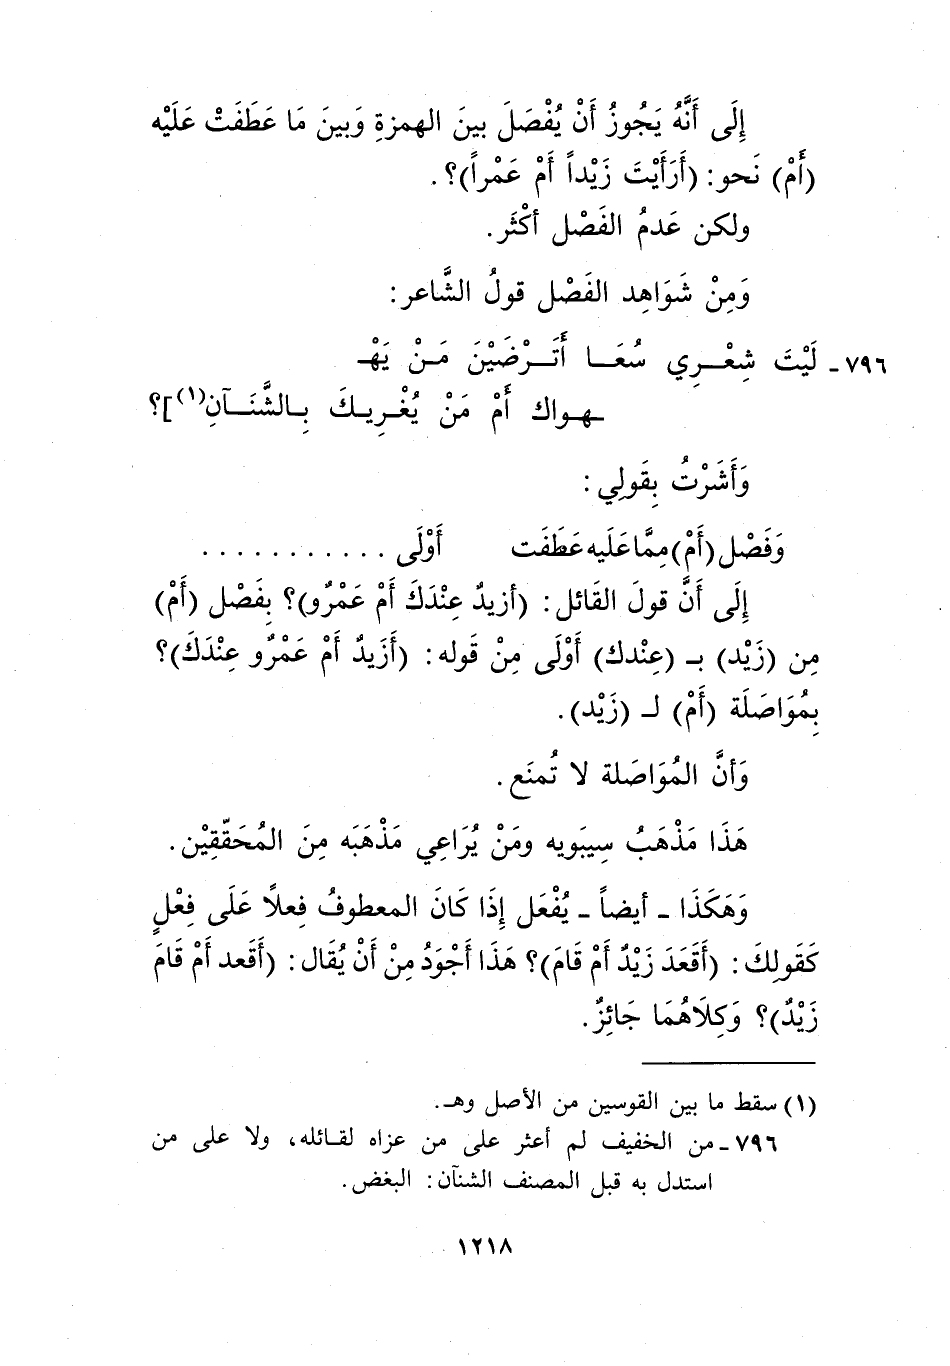 إلَى أنَّهُ يَجُوزُ أَنْ يُفْصَلَ بينَ الهمزةِ وَبينَ مَا عَطَفَتْ عَلَيْه
(أَمْ) نَحو: (أَرَأَيْتَ زَيْداً أَمْ عَمْراً)؟.
ولكن عَدمُ الفَصْل أكْثَر.
وَمِنْ شَوَاهِد الفَصْل قولُ الشَّاعر:
٧٩٦ـ لَيْتَ شِعْــرِي سُعَــا أَتَــرْضَيْنَ مَـنْ يَهْـ
ـهـواك أَمْ مَنْ يُغْـرِيـكَ بِـالشَّنَــآنِ(١)]؟
وَأَشَرْتُ بِقَولِي:
وَفَصْل (أَمْ) مِمَّا عَلَيه عَطَفَت أَوْلَى ...........
إلَى أَنَّ قولَ القَائل: (أزيدٌ عِنْدَكَ أَمْ عَمْرٌو)؟ بِفَصْل (أَمْ)
مِن (زَيْد) بـ (عِنْدك) أَوْلَى مِنْ قَوله: (أَزَيدٌ أَمْ عَمْرٌو عِنْدَكَ)؟
بِمُوَاصَلَة (أَمْ) لـ (زَيْد).
وَأنَّ المُوَاصَلة لا تُمنَع.
هَذَا مَذْهَبُ سِيبَويه ومَنْ يُرَاعِي مَذْهَبَه مِنَ المُحَقّقِيْن.
وَهَكَذَا ـ أيضاً ـ يُفْعَل إذَا كَانَ المعطوفُ فِعلاً عَلَى فِعْلٍ
كَقَولِكَ: (أَقَعَدَ زَيْدٌ أَمْ قَامَ)؟ هَذَا أَجْوَدُ مِنْ أَنْ يُقَال: (أَقَعد أَمْ قَامَ
زَيْدٌ)؟ وَكِلاَهُمَا جَائِزٌ.
(١) سقط ما بين القوسين من الأصل وهـ.
٧٩٦ـ من الخفيف لم أعثر على من عزاه لقائله، ولا على من
استدل به قبل المصنف الشنآن: البغض.
١٢١٨